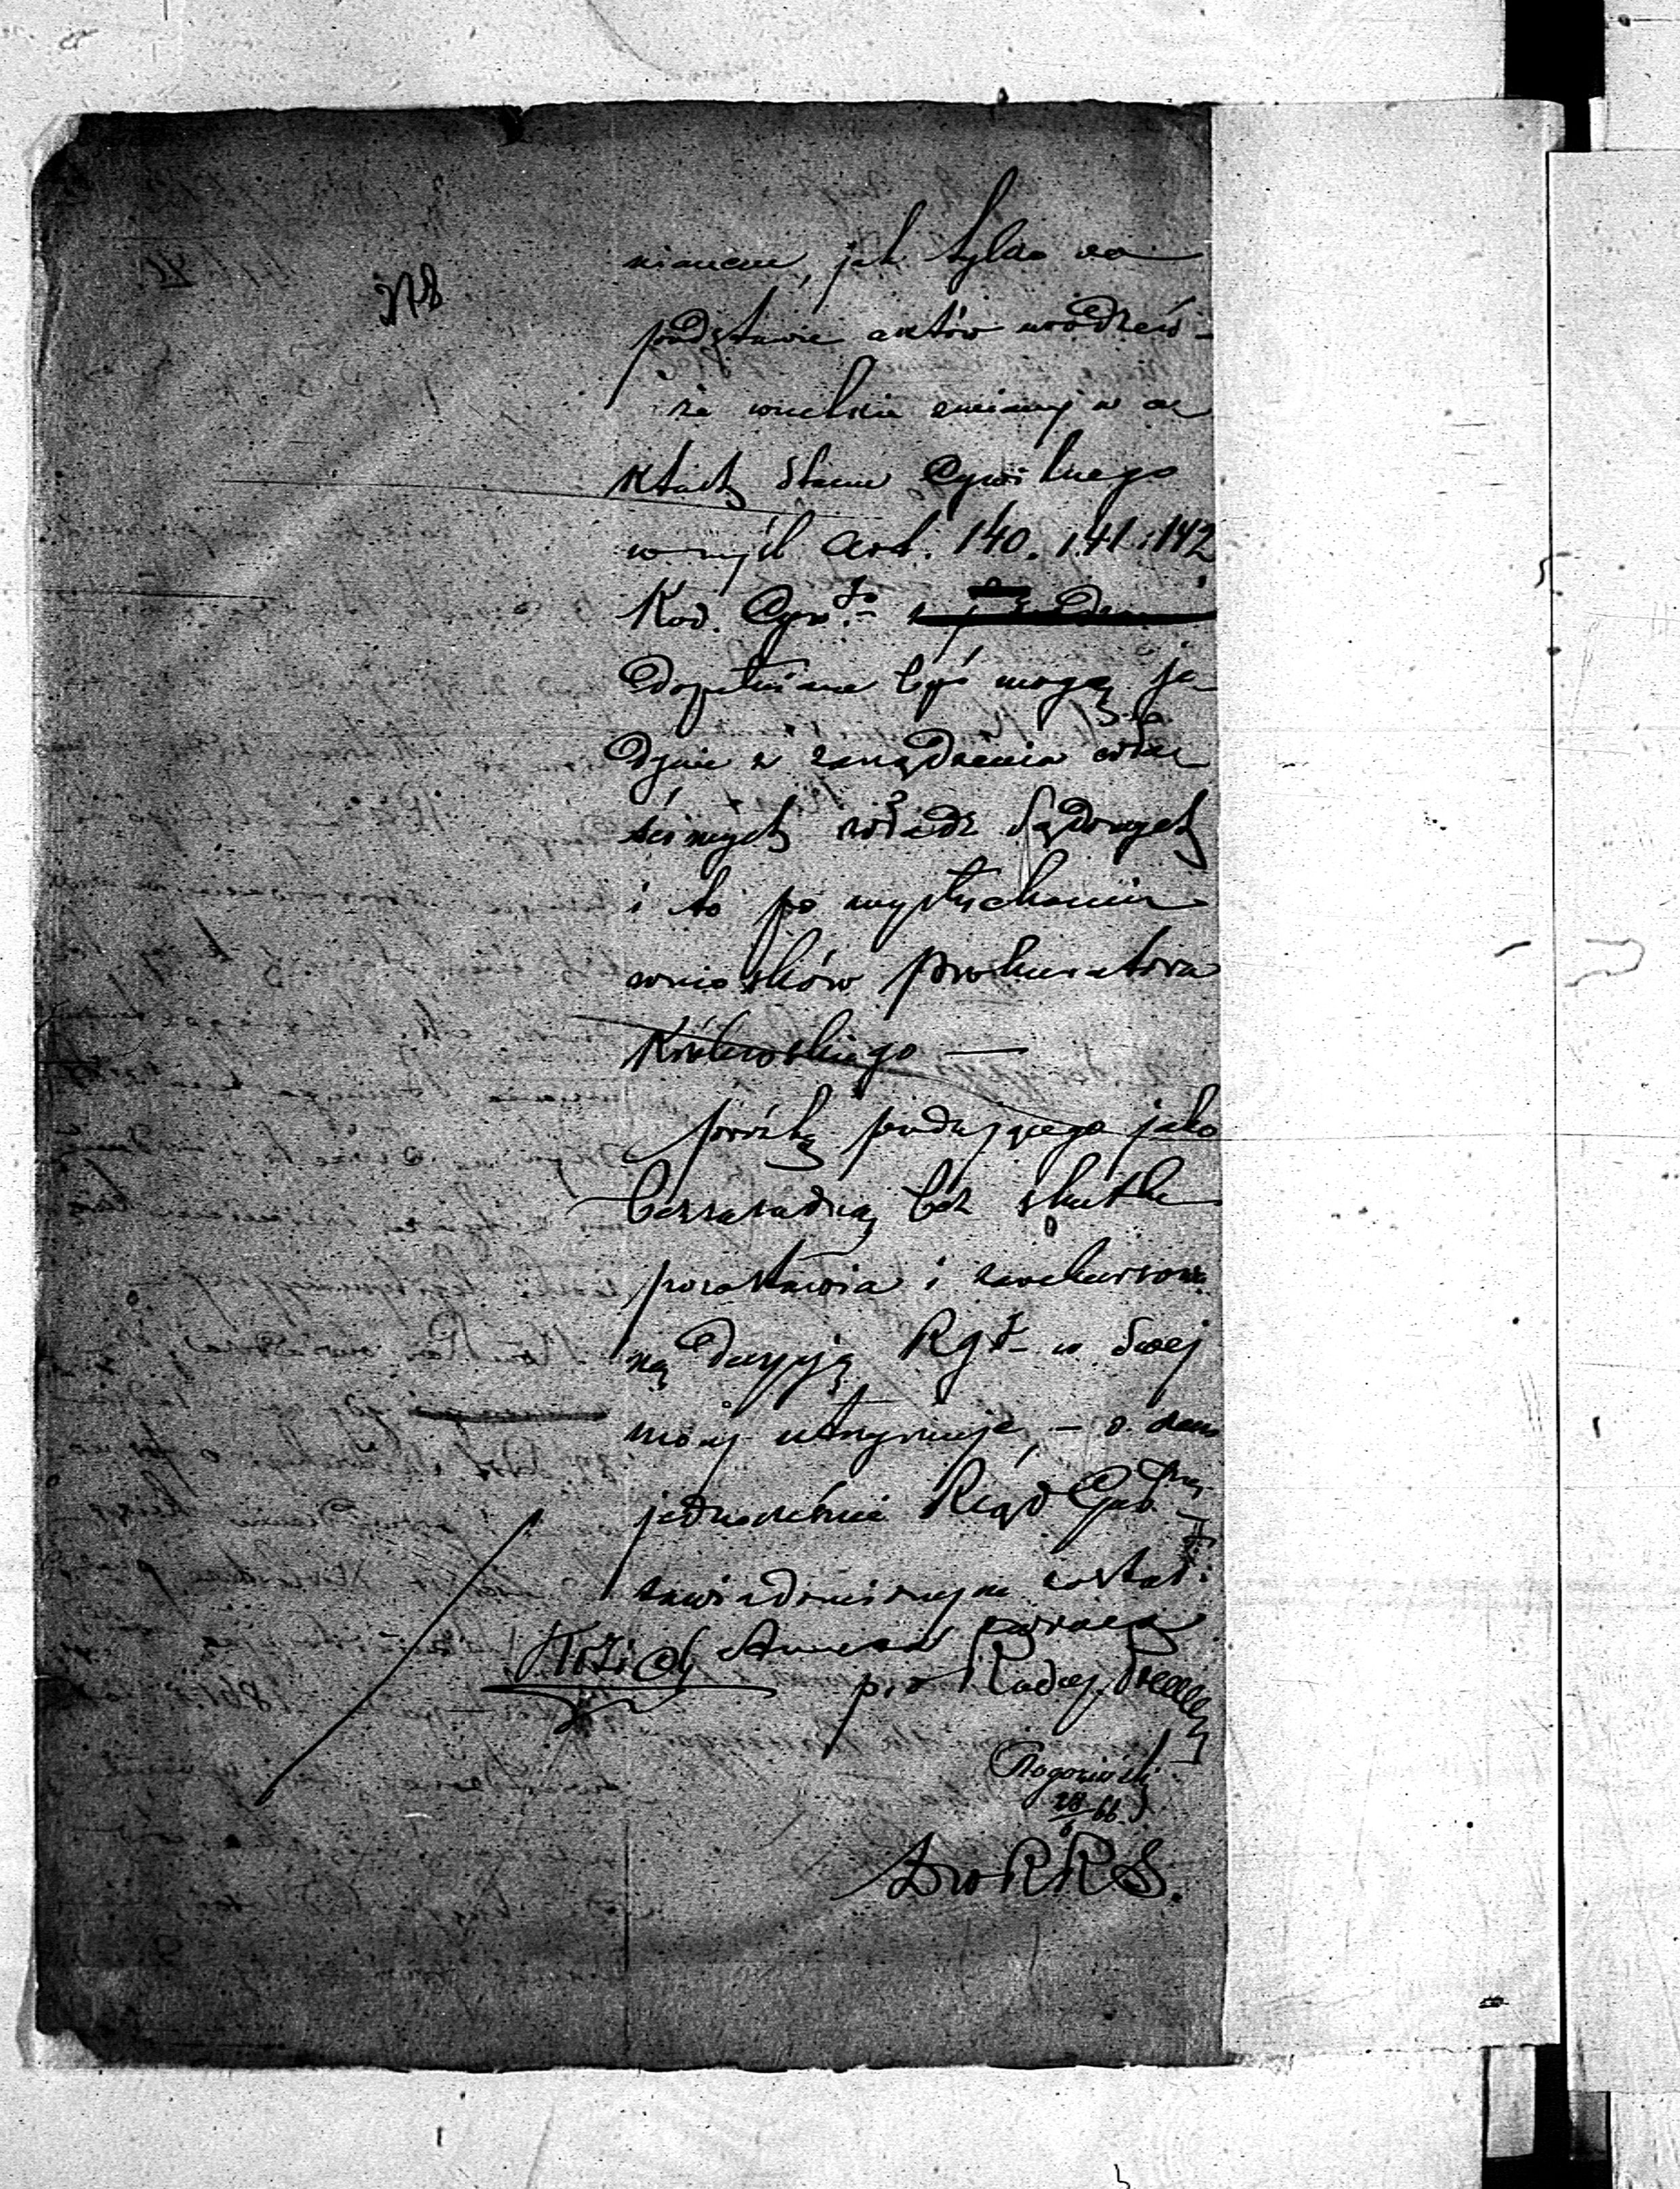 nianem, jak tylko na
podstawie aktów urodzeń -
że wszelkie zmiany w a
ktach Stanu Cywilnego
w myśl Art. 140. 141 i 142
Kod. Cyw.go
dopełniane być mogą je-
dynie z zarządzenia wła
ściwych władz Sądowych
i to po wysłuchaniu
wniosków prokuratora
Królewskiego —
prośbę podającego jako
bezzasadną bez skutku
pozostawia i zaskarżo
ną decyzją Rgł w swej
mocy utrzymuje, — o czem
jednocześnie Rząd Gub.
zawiadomionym został.
Annexa zwraca
p. o Radcy
Rogoziński
28/6 66
DwRRS.